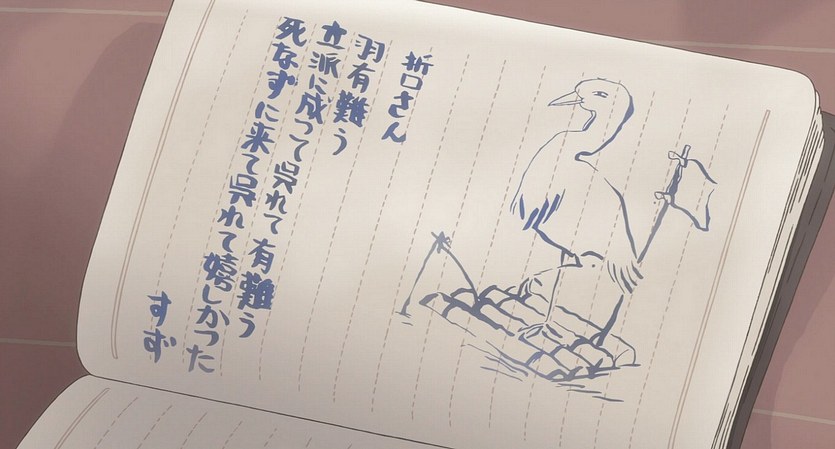 哲さん
羽有難う
立派に成って呉れて有難う
死なずに来て呉れて嬉しかった
すず